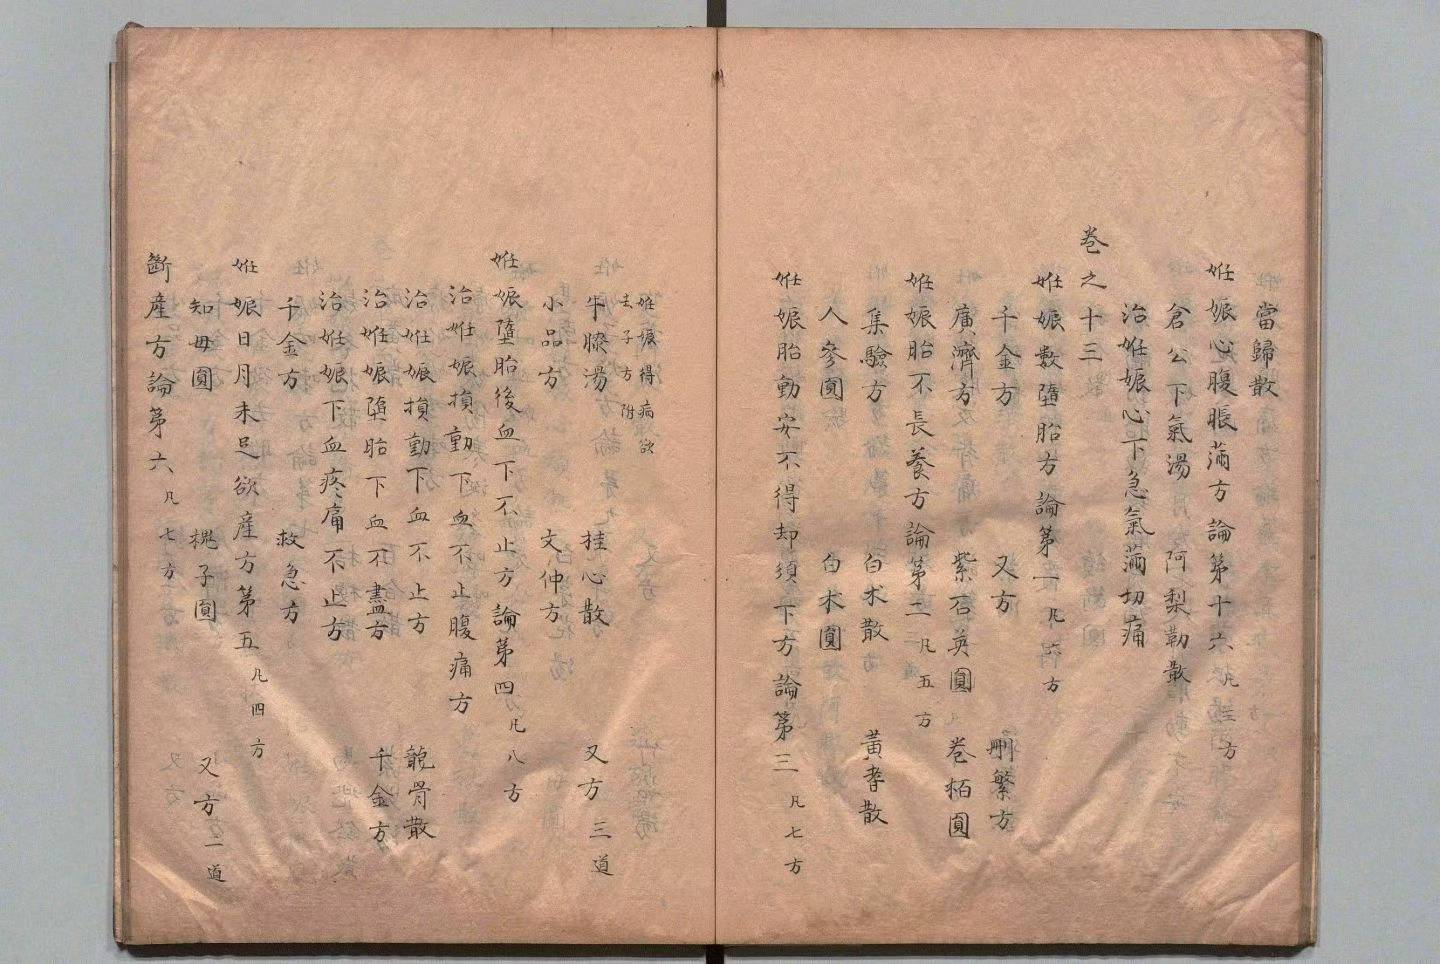 當歸散
妊娠心腹脹滿方論第十六 凡三方
倉公下氣湯 阿梨勒散
治妊娠心下急氣滿切痛
卷之十三
妊娠數墮胎方論第一 凡六方
千金方 又方 刪繁方
廣濟方 紫石英圓 卷栢圓
妊娠胎不長養方論第二 凡五方
集驗方 白朮散 黃耆散
人參圓 白朮圓
妊娠胎動安不得却須下方論第三 凡七方
妊娠得病欲
去子方附
牛膝湯 桂心散 又方三道
小品方 文仲方
妊娠墮胎後血下不止方論第四 凡八方
治妊娠損動下血不止腹痛方
治妊娠損動下血不止方 龍骨散
治妊娠墮胎下血不盡方 千金方
治妊娠下血疼痛不止方
千金方 救急方
妊娠日月未足欲產方第五 凡四方
知母圓 槐子圓 又方二道
斷產方論第六 凡七方